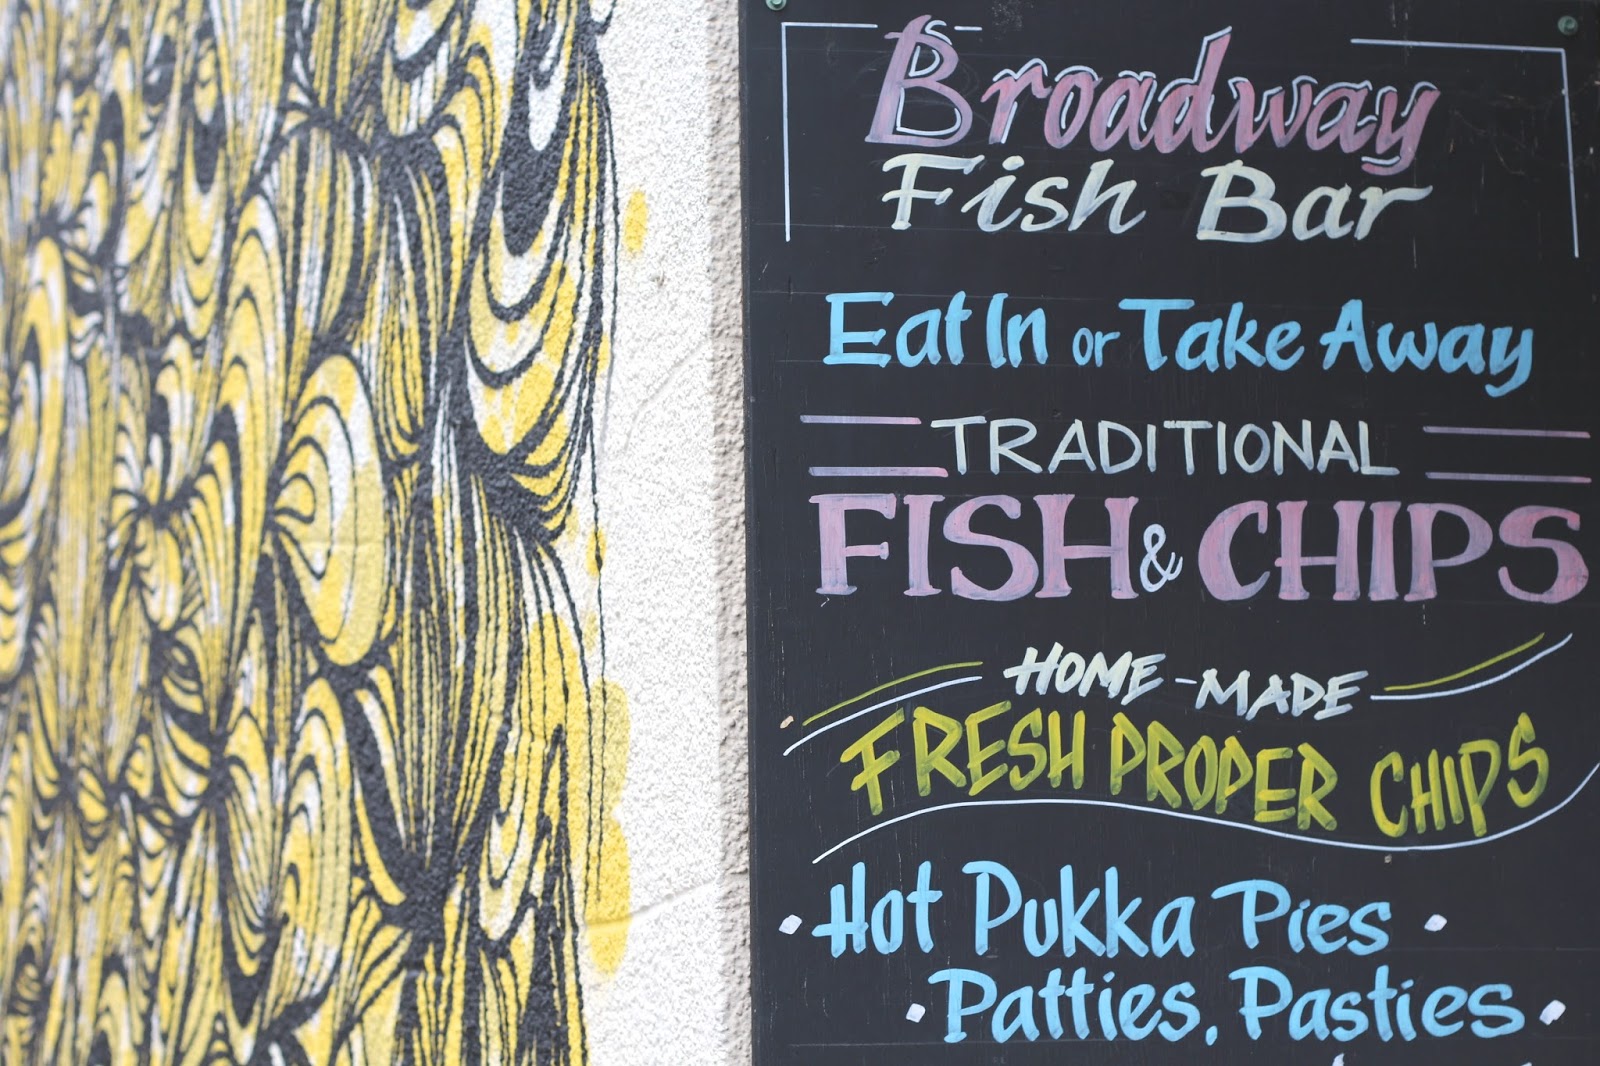 Broadway
Fish Bar
Eat In or Take Away
TRADITIONAL
FISH & CHIPS
HOME-MADE
FRESH PROPER CHIPS
· Hot Pukka Pies ·
· Patties, Pasties ·